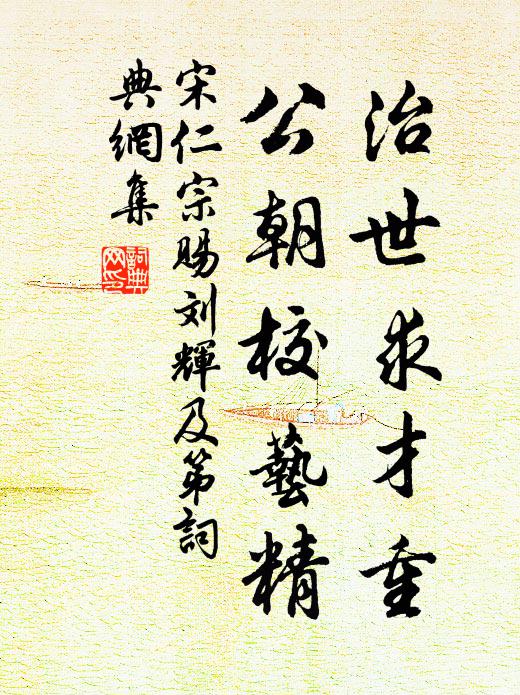 治世求才重
公朝校藝精
宋仁宗賜刘輝及第詞
典網集
詞典網印